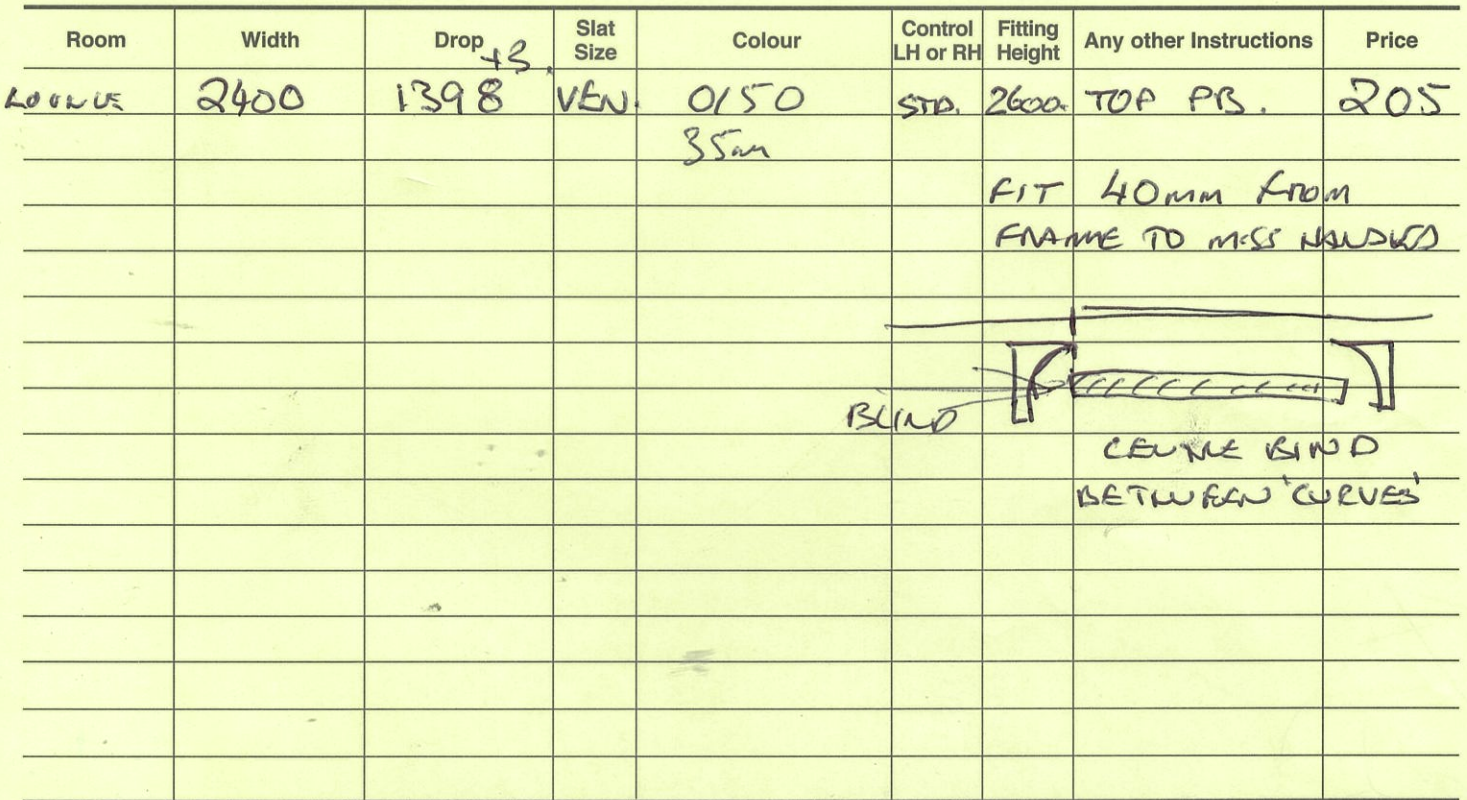 Room Width Drop Slat Size Colour Control LH or RH Fitting Height Any other Instructions Price
+3
LOUNGE 2400 1398 VEN. 0150 STD. 2600 TOP PB. 205
35mm
FIT 40mm from
FRAME TO MISS HANDLES
BLIND
CENTRE BIND
BETWEEN 'CURVES'